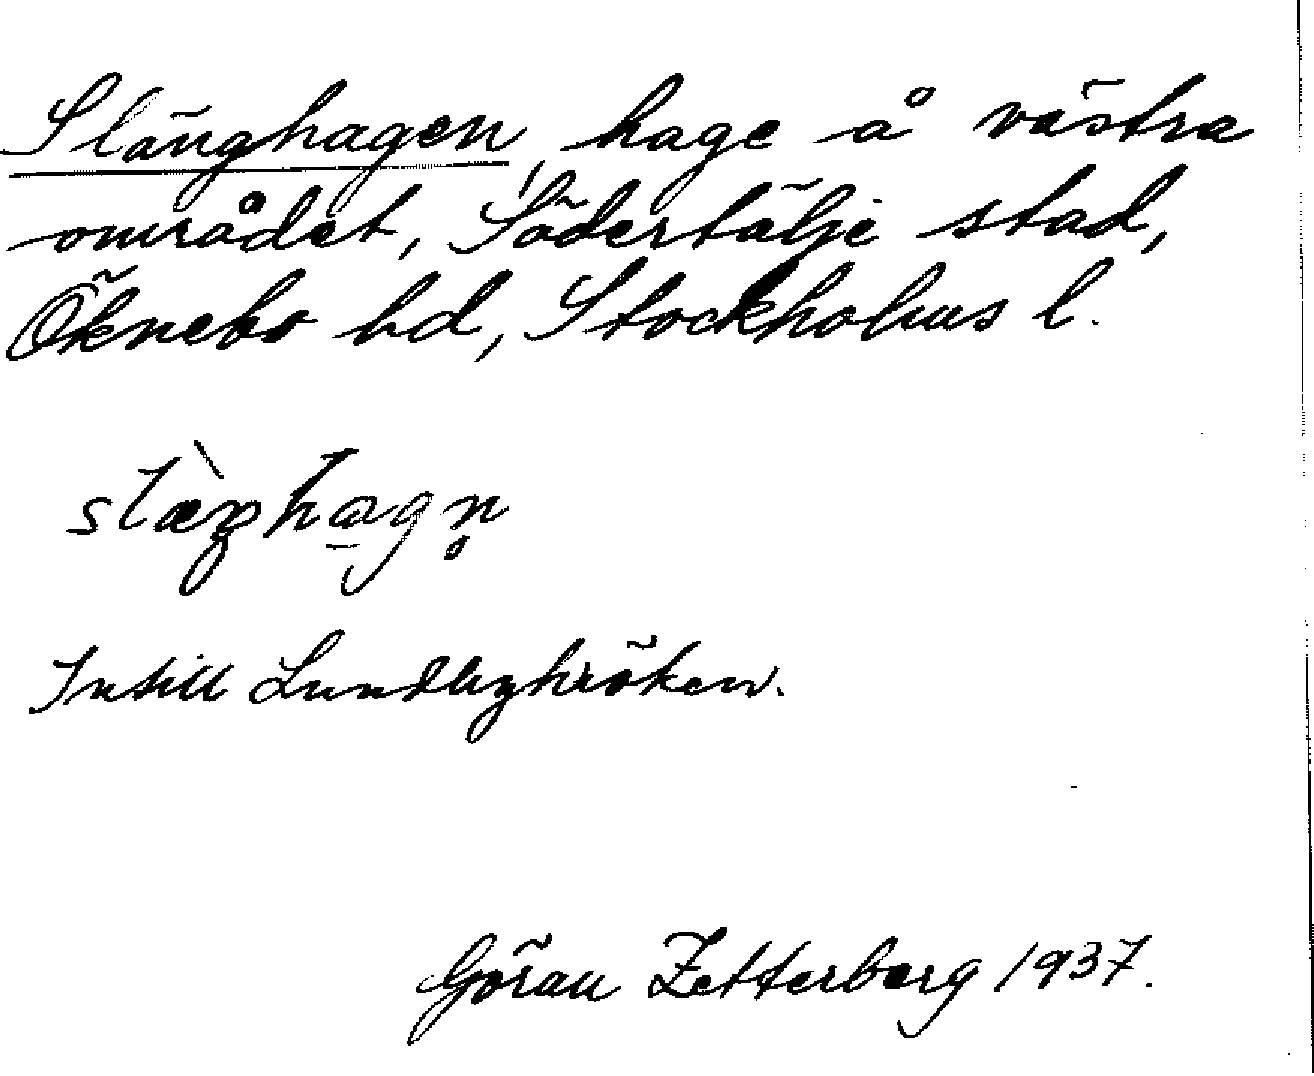 Slänghagen, hage å västra
området, Södertälje stad,
Öknebo hd, Stockholms l.
slæ̀ŋhagn̥
Intill Lundbykröken.
Göran Zetterberg 1937.